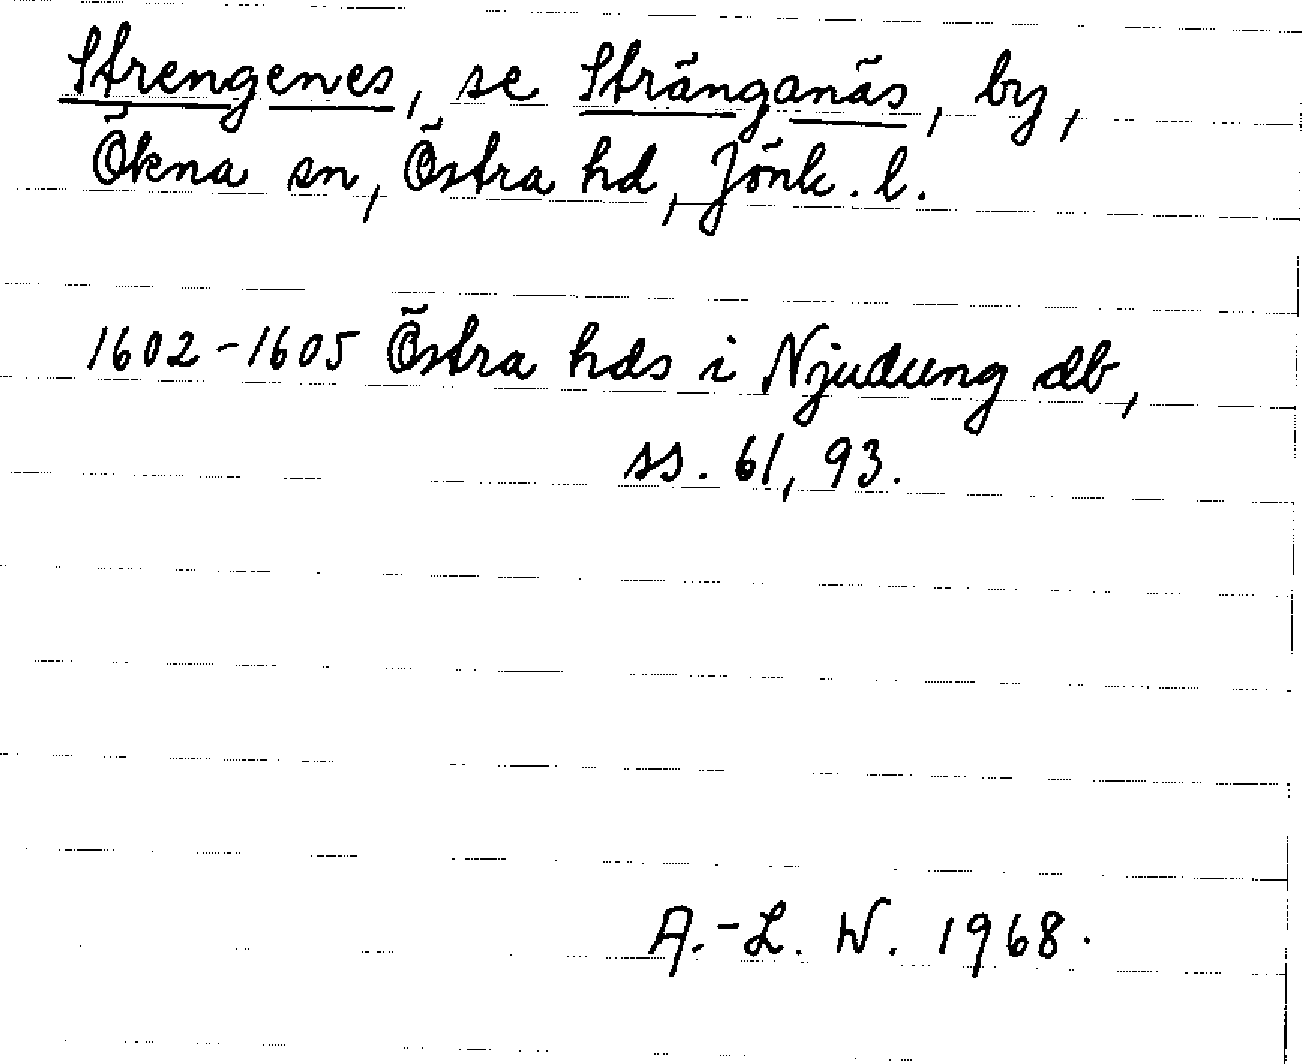 Strengenes, se Stränganäs, by,
Ökna sn, Östra hd, Jönk. l.
1602-1605 Östra hds i Njudung db,
ss. 61, 93.
A.-L. W. 1968.